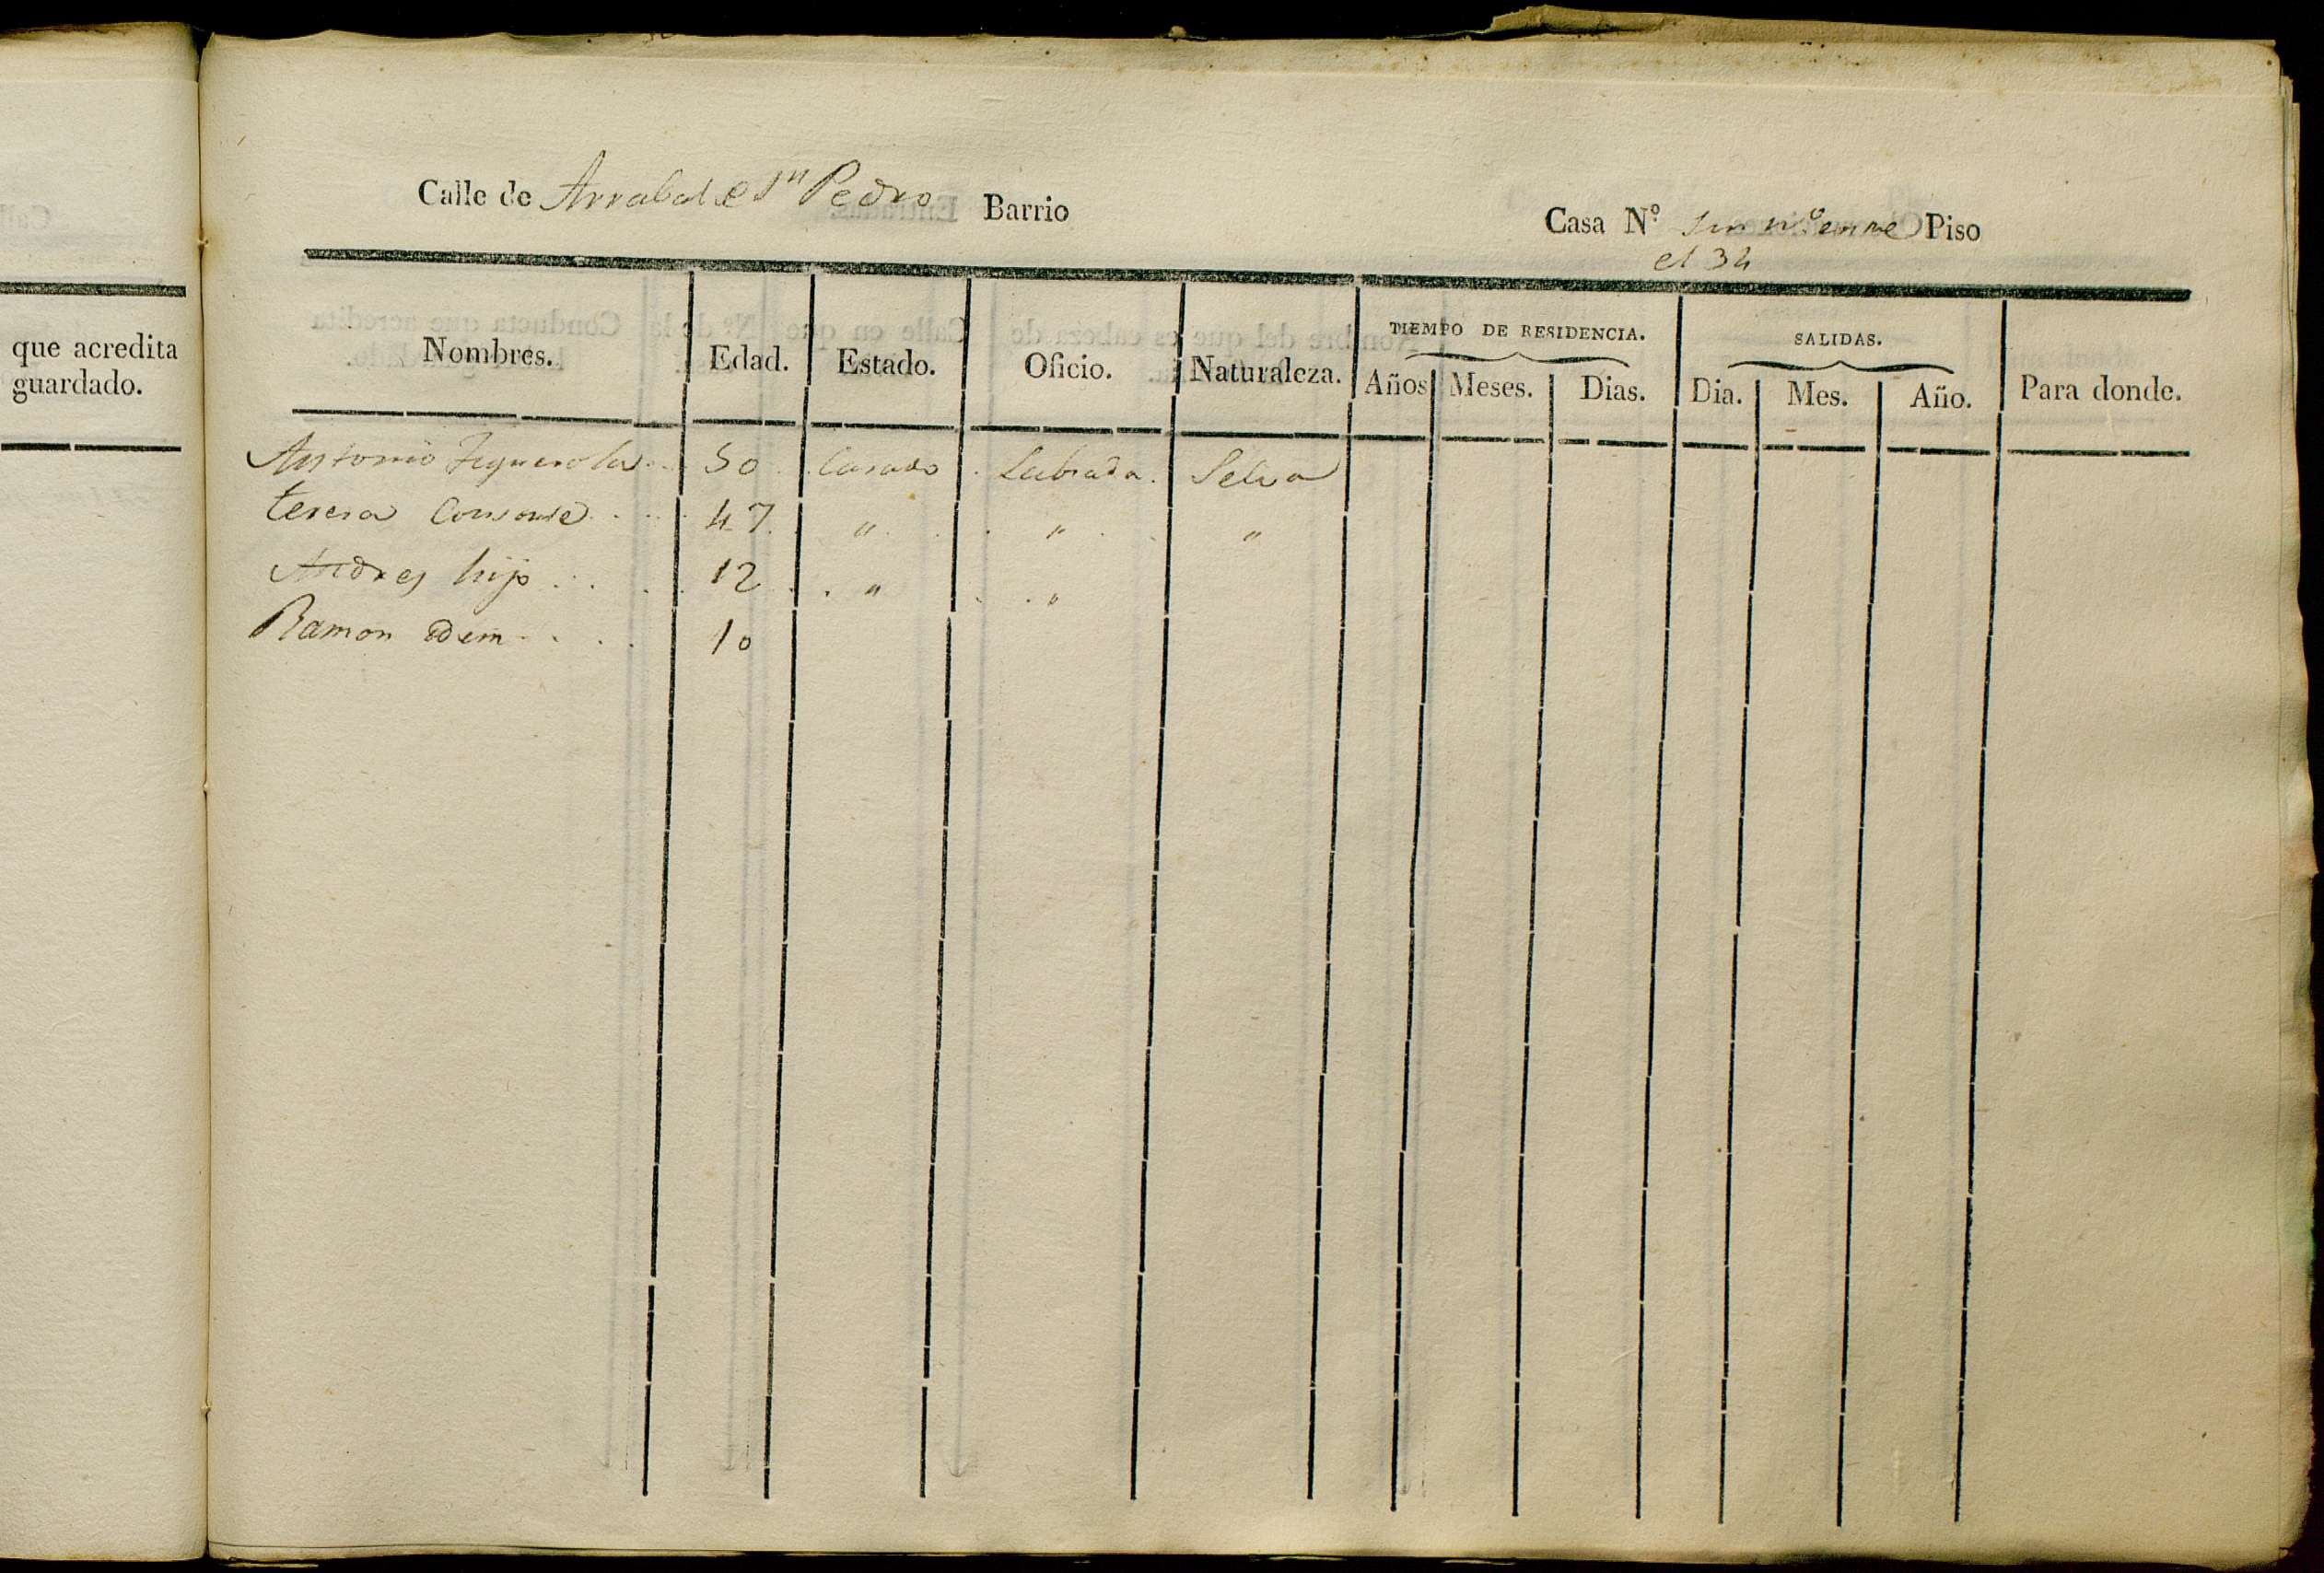 que acredita
guardado.
Calle de Arrabal de Sn Pedro Barrio
Casa Nº sin nº entre Piso
el 34
Nombres. Edad. Estado. Oficio. Naturaleza. TIEMPO DE RESIDENCIA. SALIDAS. Para donde.
Años Meses. Dias. Dia. Mes. Año.
Antonio Figuerola 50 Casado Labrador Selva
teresa Consorte 47 " " "
Andres hijo 12 " "
Ramon idem 10